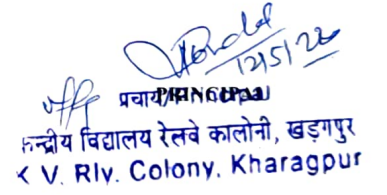 12/5/22
प्रचार्य/PRINCIPAL
केन्द्रीय विद्यालय रेलवे कालोनी, खड़गपुर
K V. Rly. Colony, Kharagpur